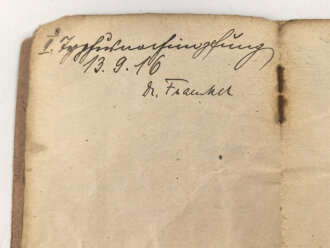 I. Typhusnachimpfung
13.9.16
Dr. Fraenkel